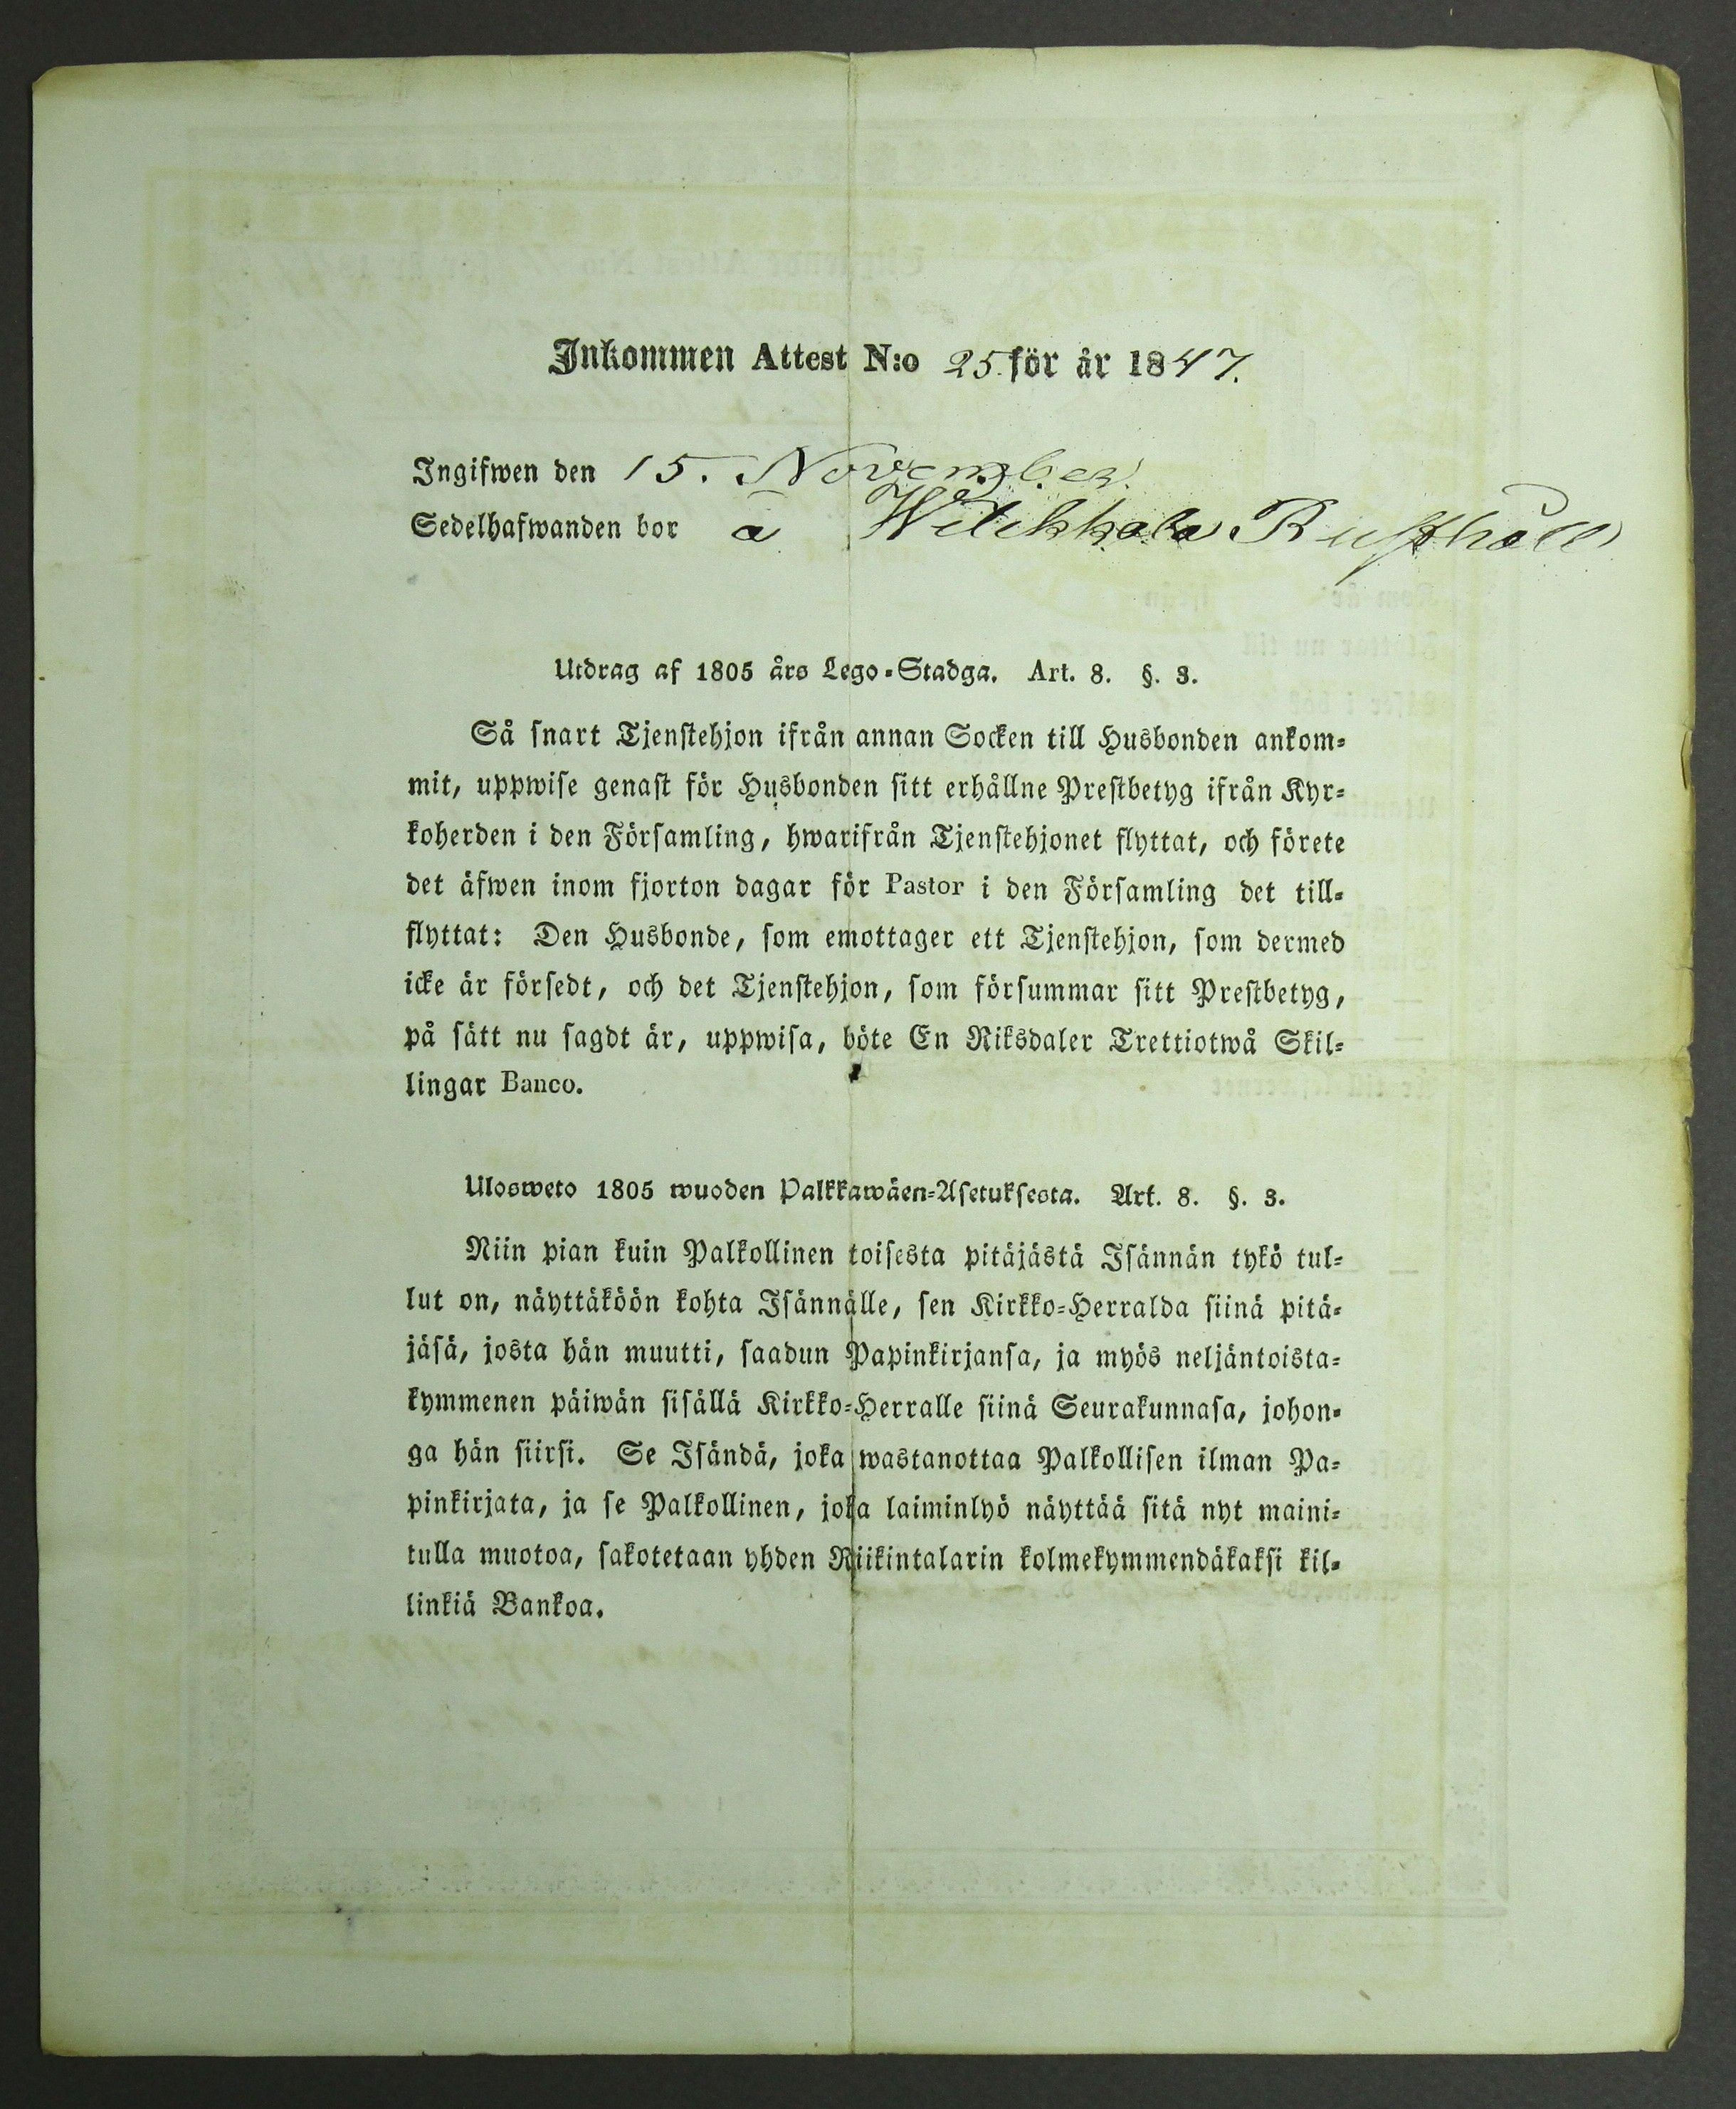 Inkommen Attest N:o 25. för år 1847.
Ingifwen den 15. November
Sedelhafwanden bor å Wilikkala Rusthåll
Utdrag af 1805 års Lego-Stadga. Art. 8. §. 3.
Så snart Tjenstehjon ifrån annan Socken till Husbonden ankom-
mit, uppwise genast för Husbonden sitt erhållne Prestbetyg ifrån Kyr-
koherden i den Församling, hwarifrån Tjenstehjonet flyttat, och förete
det äfwen inom fjorton dagar för Pastor i den Församling det till-
flyttat: Den Husbonde, som emottager ett Tjenstehjon, som dermed
icke är försedt, och det Tjenstehjon, som försummar sitt Prestbetyg,
på sätt nu sagdt är, uppwisa, böte En Riksdaler Trettiotwå Skil-
lingar Banco.
Ulosweto 1805 wuoden Palkkawäen-Asetuksesta. Art. 8. §. 3.
Niin pian kuin Palkollinen toisesta pitäjästä Isännän tykö tul-
lut on, näyttäköön kohta Isännälle, sen Kirkko-Herralda siinä pitä-
jäsä, josta hän muutti, saadun Papinkirjansa, ja myös neljäntoista-
kymmenen päiwän sisällä Kirkko-Herralle siinä Seurakunnasa, johon-
ga hän siirsi. Se Isändä, joka wastanottaa Palkollisen ilman Pa-
pinkirjata, ja se Palkollinen, joka laiminlyö näyttää sitä nyt maini-
tulla muotoa, sakotetaan yhden Riikintalarin kolmekymmendäkaksi kil-
linkiä Bankoa.